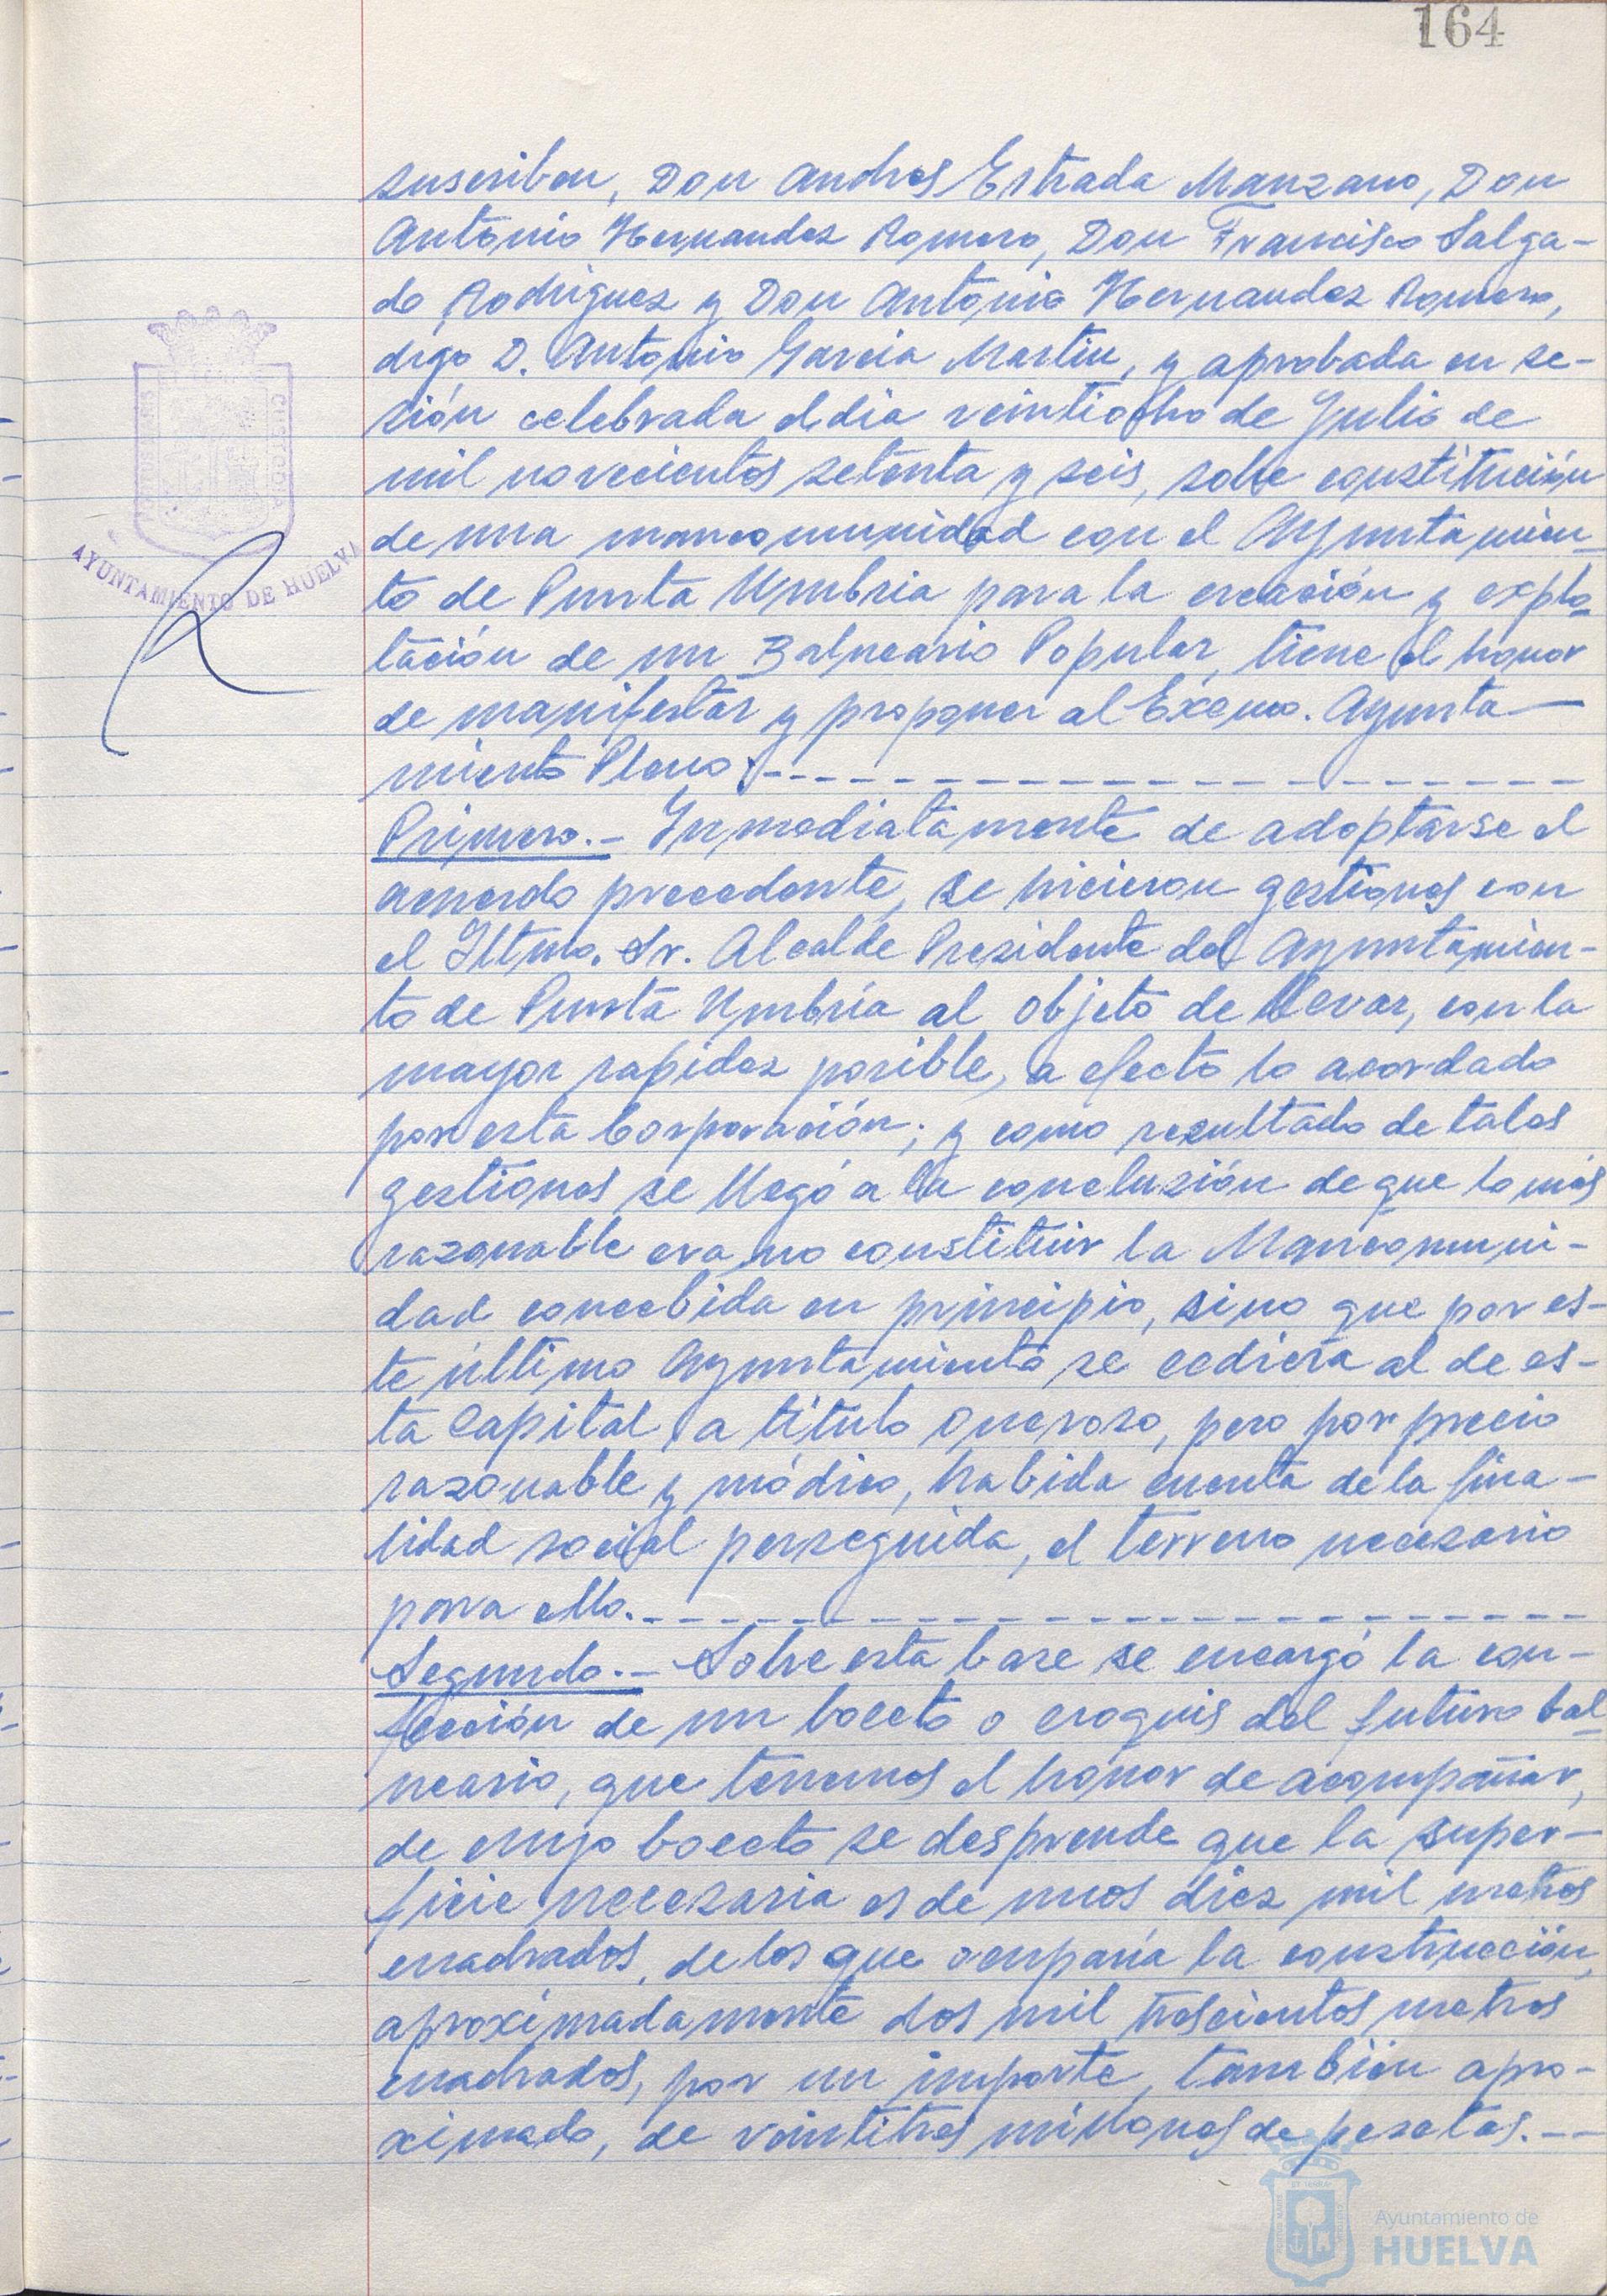 164
suscriben, Don Andres Estrada Manzano, Don
Antonio Hernandez Romero, Don Francisco Salga-
do Rodriguez y Don Antonio Hernandez Romero,
digo D. Antonio Garcia Martin, y aprobada en se-
sión celebrada el dia veintiocho de Julio de
mil novecientos setenta y seis, sobre constitución
de una mancomunidad con el Ayuntamien-
to de Punta Umbria para la creación y explo-
tación de un Balneario Popular, tiene el honor
de manifestar y proponer al Excmo. Ayunta-
miento Pleno:
Primero.- Inmediatamente de adoptarse el
acuerdo precedente, se hicieron gestiones con
el Iltmo. Sr. Alcalde Presidente del Ayuntamien-
to de Punta Umbría al objeto de llevar, con la
mayor rapidez posible, a efecto lo acordado
por esta Corporación; y como resultado de tales
gestiones se llegó a la conclusión de que lo más
razonable era no constituir la Mancomuni-
dad concebida en principio, sino que por es-
te último Ayuntamiento se cediera al de es-
ta Capital, a título oneroso, pero por precio
razonable y módico, habida cuenta de la fina-
lidad social perseguida, el terreno necesario
para ello.
Segundo.- Sobre esta base se encargó la con-
fección de un boceto o croquis del futuro bal-
neario, que tenemos el honor de acompañar,
de cuyo boceto se desprende que la super-
ficie necesaria es de unos diez mil metros
cuadrados, de los que ocuparía la construcción,
aproximadamente dos mil trescientos metros
cuadrados, por un importe, también apro-
ximado, de veintitres millones de pesetas.--
PORTUS MARIS
CUSTODIA
AYUNTAMIENTO DE HUELVA
Ayuntamiento de
HUELVA